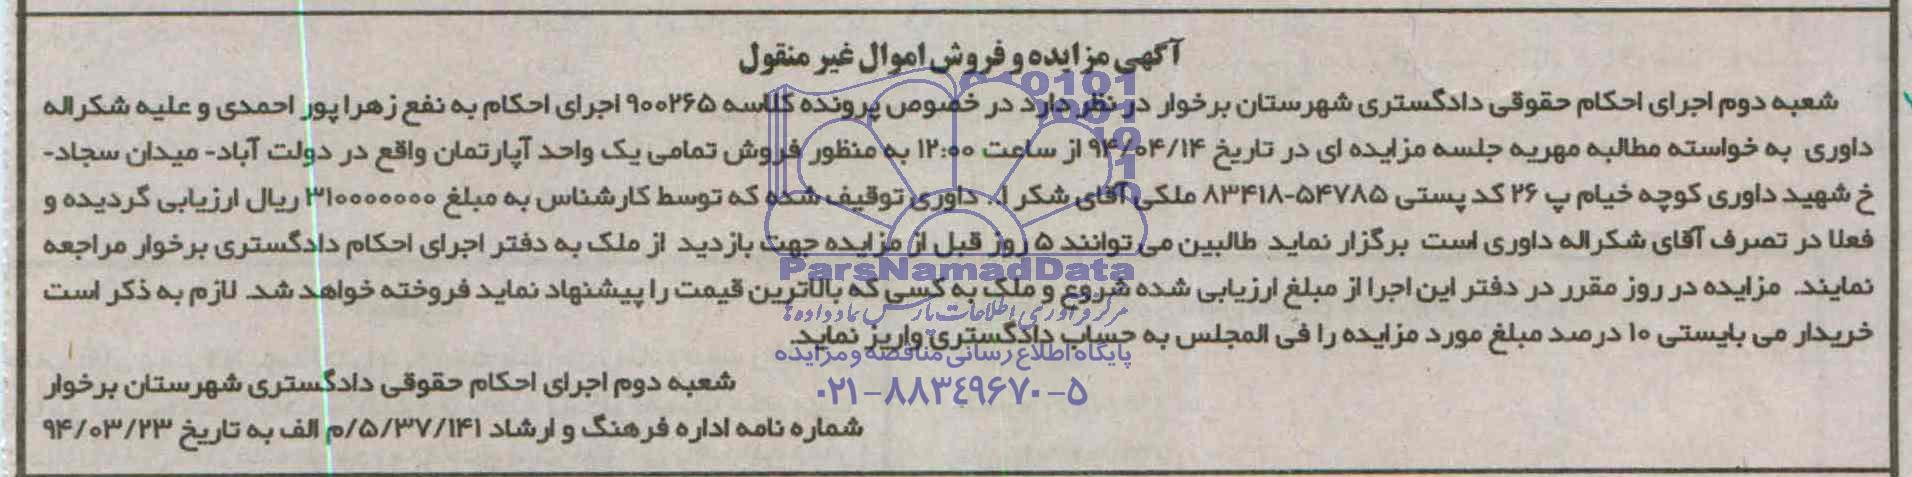 آگهی مزایده و فروش اموال غیر منقول
شعبه دوم اجرای احکام حقوقی دادگستری شهرستان برخوار در نظر دارد در خصوص پرونده کلاسه ۹۰۰۲۶۵ اجرای احکام به نفع زهرا پور احمدی و علیه شکراله
داوری به خواسته مطالبه مهریه جلسه مزایده ای در تاریخ ۹۴/۰۴/۱۴ از ساعت ۱۲:۰۰ به منظور فروش تمامی یک واحد آپارتمان واقع در دولت آباد- میدان سجاد-
خ شهید داوری کوچه خیام پ ۲۶ کد پستی ۵۴۷۸۵-۸۳۴۱۸ ملکی آقای شکر ا.. داوری توقیف شده که توسط کارشناس به مبلغ ۳۱۰۰۰۰۰۰۰ ریال ارزیابی گردیده و
فعلا در تصرف آقای شکراله داوری است برگزار نماید طالبین می توانند ۵ روز قبل از مزایده جهت بازدید از ملک به دفتر اجرای احکام دادگستری برخوار مراجعه
نمایند. مزایده در روز مقرر در دفتر این اجرا از مبلغ ارزیابی شده شروع و ملک به کسی که بالاترین قیمت را پیشنهاد نماید فروخته خواهد شد. لازم به ذکر است
خریدار می بایستی ۱۰ درصد مبلغ مورد مزایده را فی المجلس به حساب دادگستری واریز نماید.
شعبه دوم اجرای احکام حقوقی دادگستری شهرستان برخوار
شماره نامه اداره فرهنگ و ارشاد ۵/۳۷/۱۴۱/م الف به تاریخ ۹۴/۰۳/۲۳
ParsNamadData
مرکز فرآوری اطلاعات پارس نماد داده ها
پایگاه اطلاع رسانی مناقصه و مزایده
۰۲۱-۸۸۳۴۹۶۷۰-۵